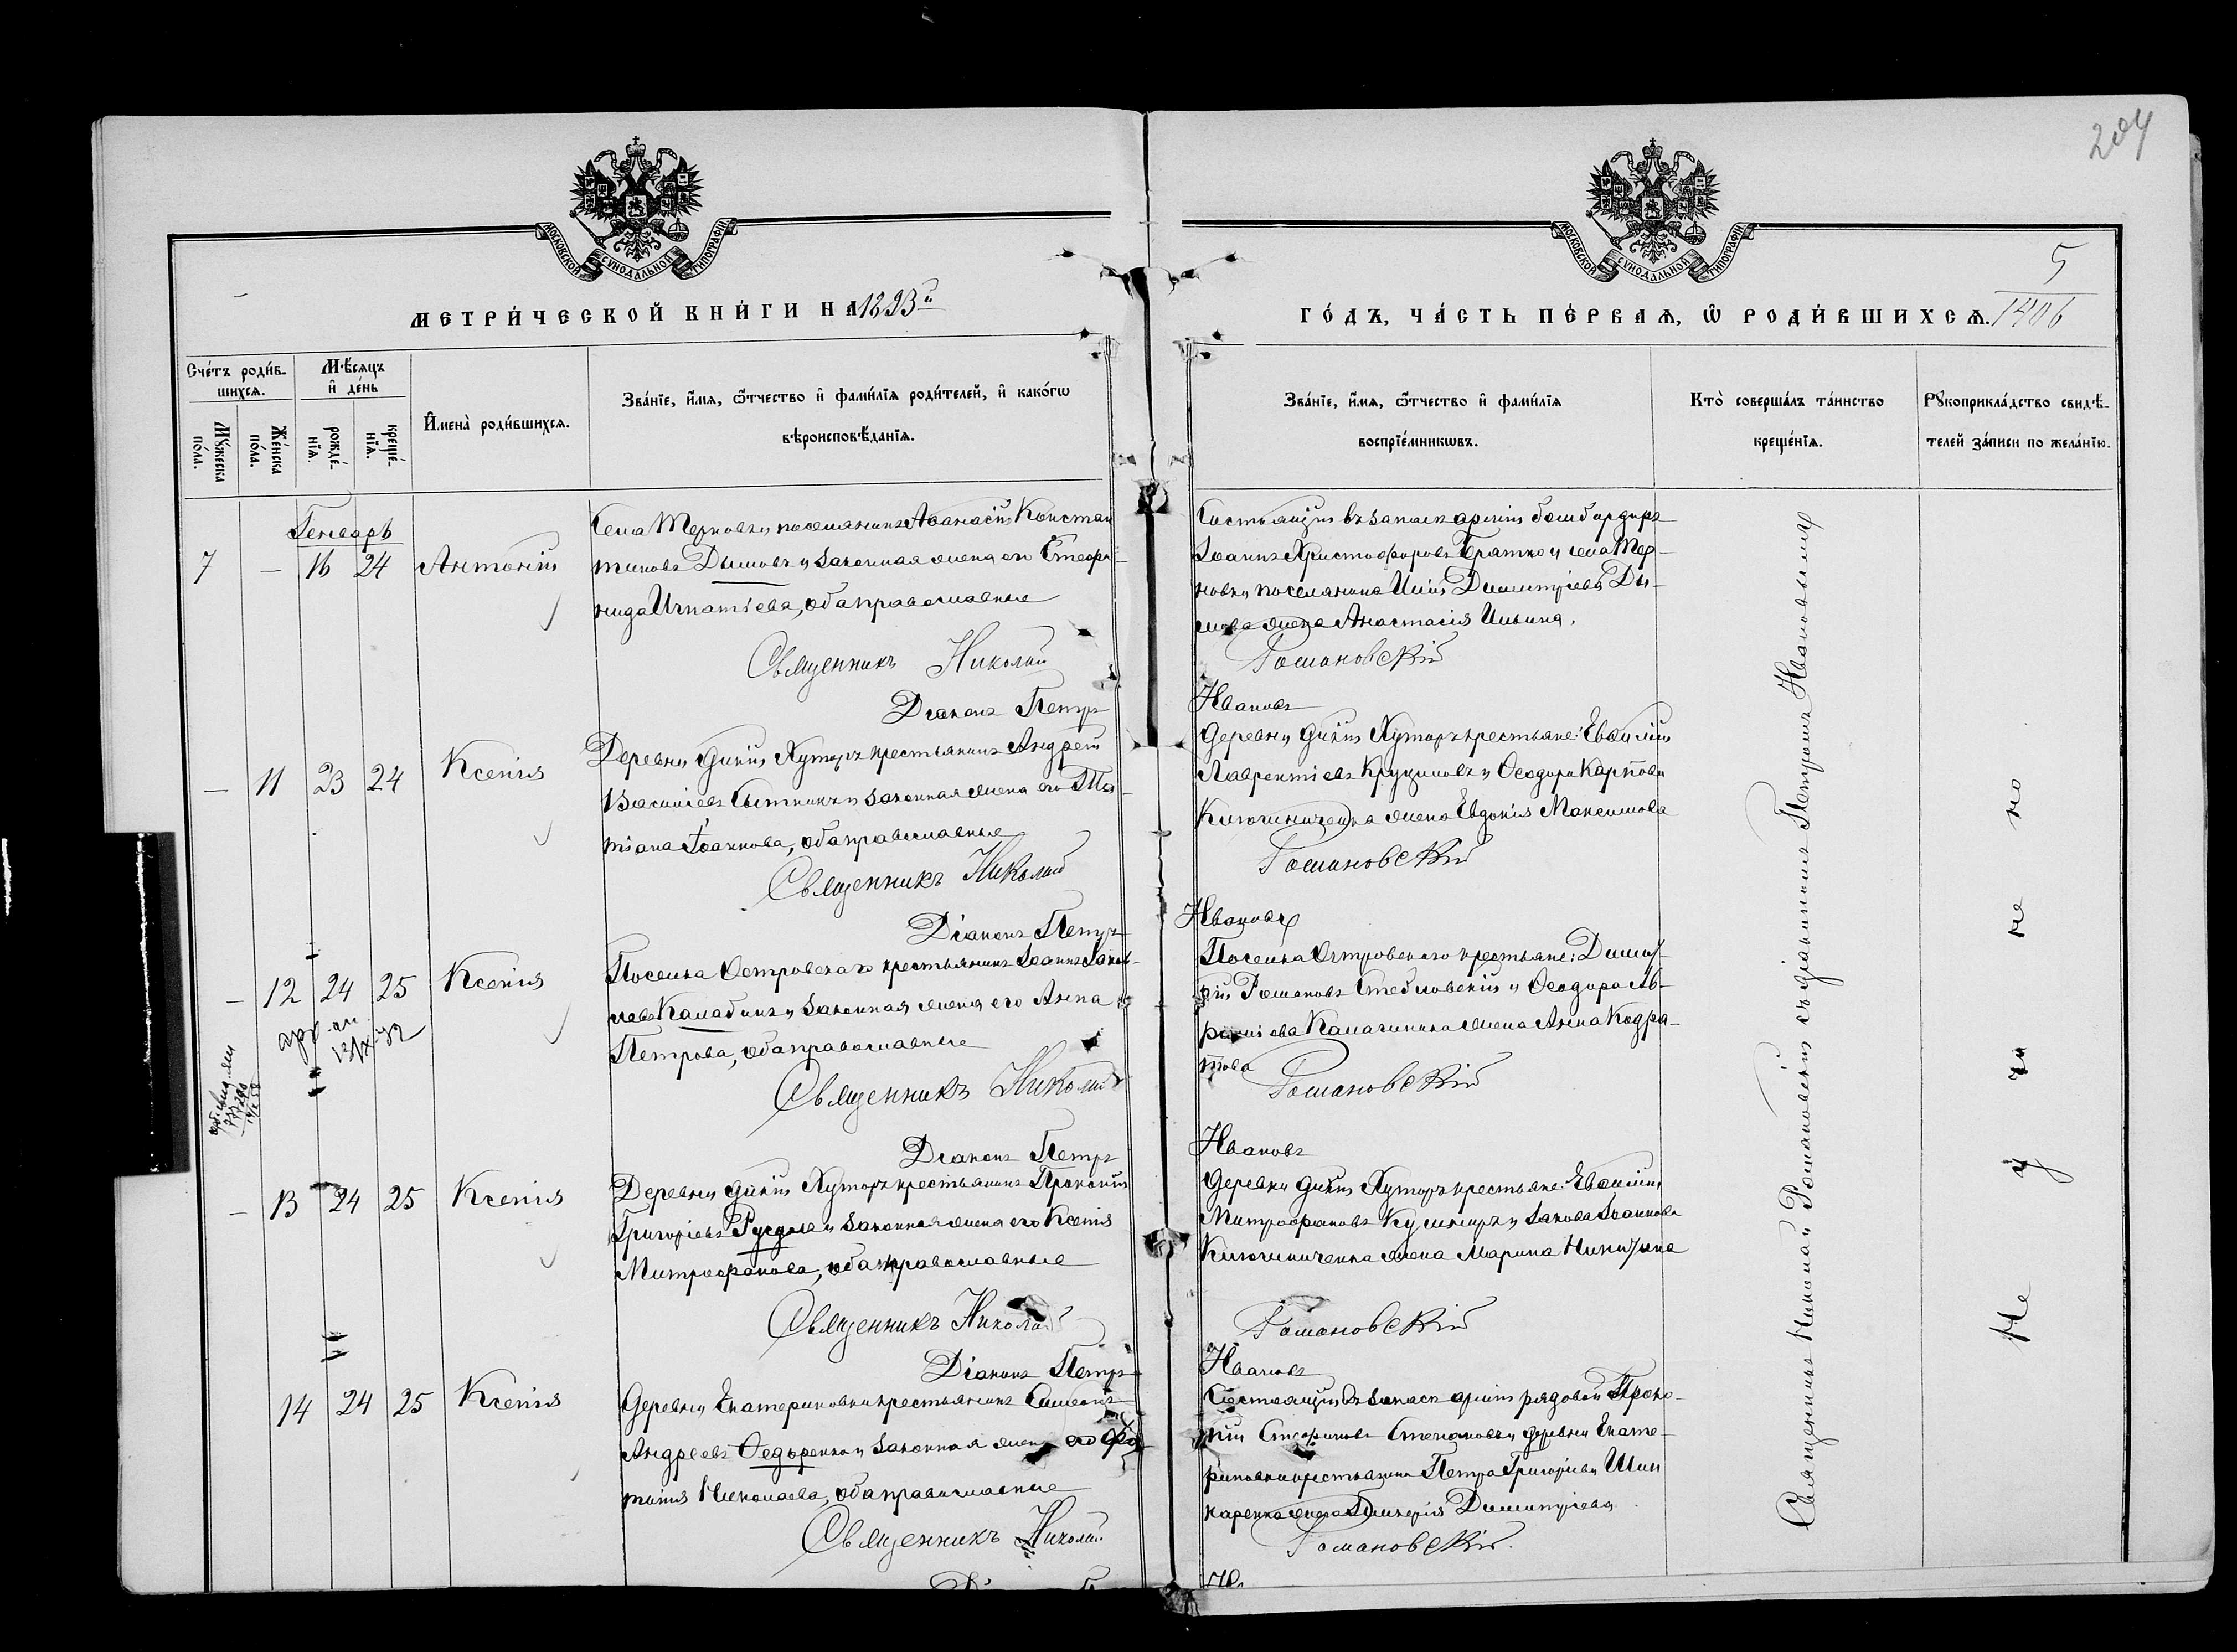 204
МОСКОВСКОЙ СѴНОДАЛЬНОЙ ТИПОГРАФІИ
МОСКОВСКОЙ СѴНОДАЛЬНОЙ ТИПОГРАФІИ
МЕТРИ́ЧЕСКОЙ КНИ́ГИ НА 1893й
ГО́ДЪ, ЧА́СТЬ ПЕ́РВАѦ, Ѿ РОДИ́ВШИХСѦ.
5
1406
Сче́тъ роди́в-
шихсѧ.
Мꙋ́жеска
по́ла.
Же́нска
по́ла.
Мѣ́сѧцъ
и҆ де́нь
рожде́-
нїѧ.
креще́-
нїѧ.
И҆мена̀ роди́вшихсѧ.
Зва́нїе, и҆́мѧ, ѻ҆́тчество и҆ фами́лїѧ роди́телей, и҆ како́гѡ
вѣроисповѣ́данїѧ.
Зва́нїе, и҆́мѧ, ѻ҆́тчество и҆ фами́лїѧ
воспрїе́мникѡвъ.
Кто̀ соверша́лъ та́инство
креще́нїѧ.
Рꙋкоприкла́дство свидѣ́-
телей за́писи по жела́нїю.
Генварь
7 — 16 24 Антоній
Села Терновки поселянинъ Аѳанасій Констан
тиновъ Дымовъ и законная жена его Стефа-
нида Игнатіева, оба православные
Священникъ Николай
Діаконъ Петръ
Состоящій въ запасѣ арміи бомбардиръ
Іоаннъ Христофоровъ Братко и села Тер-
новки поселянина Иліи Димитріева Ды-
мова жена Анастасія Ильина.
Романовскій
Ивановъ
— 11 23 24 Ксенія
Деревни Дикій Хуторъ крестьянинъ Андрей
Василіевъ Сытникъ и законная жена его Та-
тіана Іоаннова, оба православные
Священникъ Николай
Діаконъ Петръ
Деревни Дикій Хуторъ крестьяне: Евфимій
Лаврентіевъ и Ѳеодора Карпова
жена Евдокія Максимова
Романовскій
Ивановъ
— 12 24 25 Ксенія
Поселка Островскаго крестьянинъ Іоаннъ Іаков-
левъ и законная жена его Анна
Петрова, оба православные
Священникъ Николай
Діаконъ Петръ
Поселка Островскаго крестьяне: Димит-
рій Романовъ Стебловскій и Ѳеодора
жена Анна Кодра-
това
Романовскій
Ивановъ
— 13 24 25 Ксенія
Деревни Дикій Хуторъ крестьянинъ Прокопій
Григоріевъ и законная жена его Ксенія
Митрофанова, оба православные
Священникъ Николай
Діаконъ Петръ
Деревни Дикій Хуторъ крестьяне: Евфимій
Митрофановъ Кушниръ и Іакова Іоаннова
жена Марина Никитина
Романовскій
Ивановъ
14 24 25 Ксенія
Деревни Екатериновки крестьянинъ Симеонъ
Андреевъ Ѳедоренко и законная жена его Фо-
тинія Николаева, оба православные
Священникъ Николай
Состоящій въ запасѣ арміи рядовой Проко-
пій Стефановъ Степановъ и деревни Екате-
риновки крестьянина Петра Григоріева Шин
каренка жена Димитріева
Романовскій
Священникъ Николай Романовскій съ діакономъ Петромъ Ивановымъ
Не